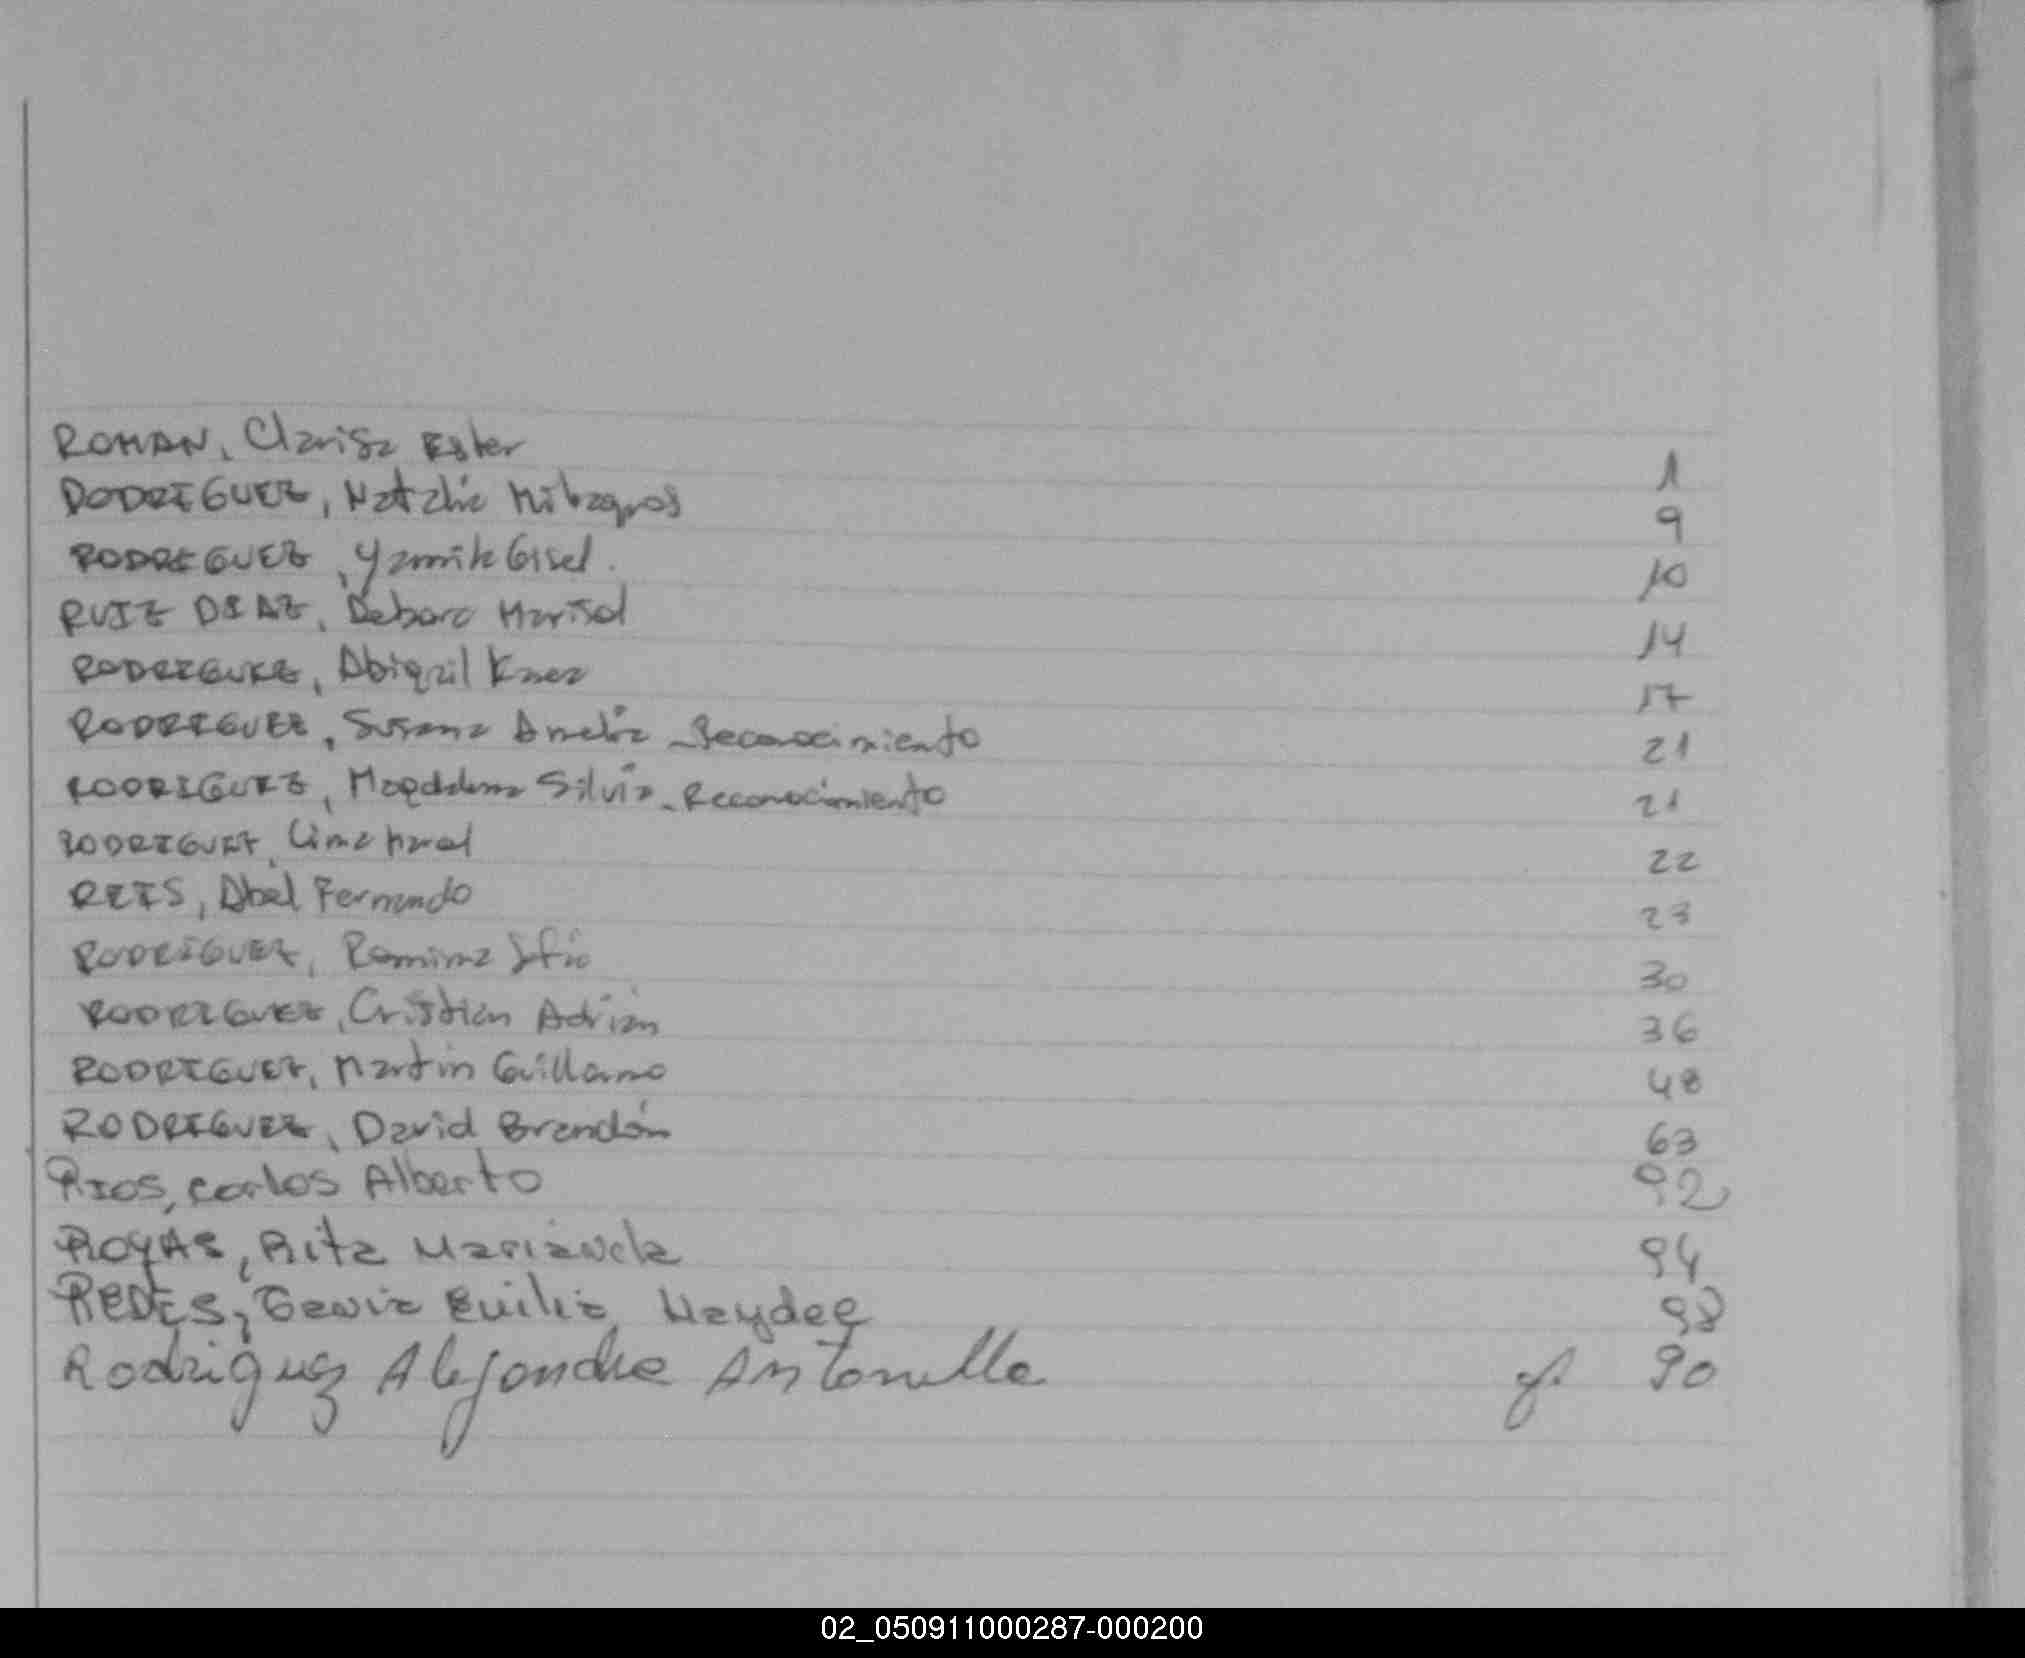 ROMAN, Clarisa Ester 1
RODRIGUEZ, Natalia Milagros 9
RODRIGUEZ, Yamila Gisel. 10
RUIZ DIAZ, Debora Marisol 14
RODRIGUEZ, Abigail 17
RODRIGUEZ, Susana Amelia - Reconocimiento 21
RODRIGUEZ, Magdalena Silvia - Reconocimiento 21
RODRIGUEZ, 22
REIS, Abel Fernando 23
RODRIGUEZ, Ramina Sofia 30
RODRIGUEZ, Cristian Adrian 36
RODRIGUEZ, Martin Guillermo 48
RODRIGUEZ, David Brandón 63
RIOS, Carlos Alberto 92
ROYAS, Rita Marianela 94
REDES, Genia Emilia Haydee 98
Rodriguez Alejandra Antonella 90
02_050911000287-000200